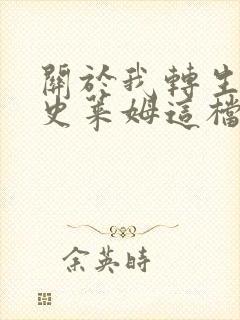 關於我轉生
史萊姆這檔
余英時